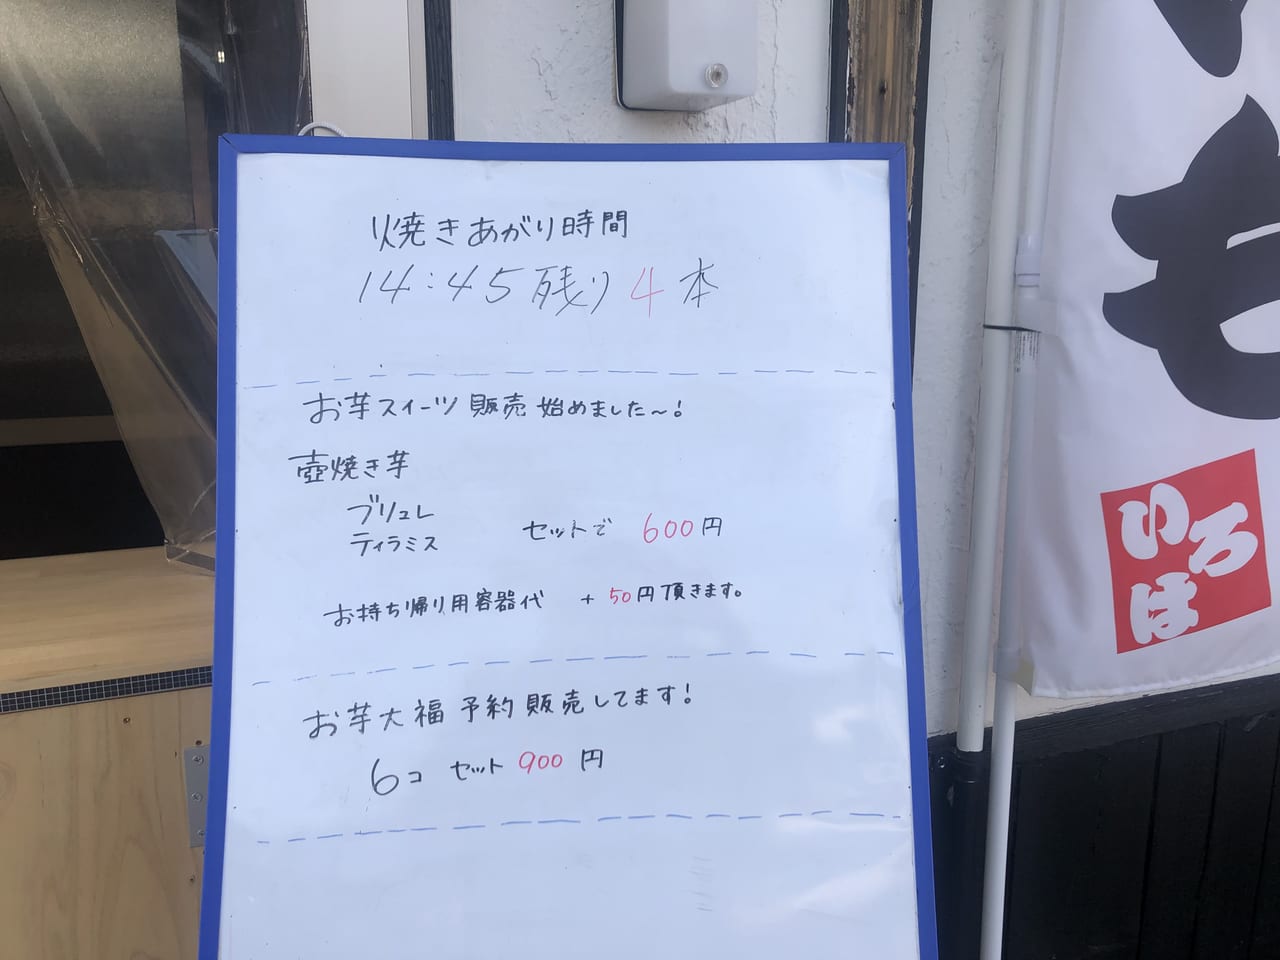 焼きあがり時間
14:45 残り 4 本
お芋スイーツ 販売 始めました〜!
壺焼き芋
ブリュレ
ティラミス
セットで 600円
お持ち帰り用容器代 + 50円頂きます。
お芋大福 予約販売してます!
6コ セット 900 円
も
いろは